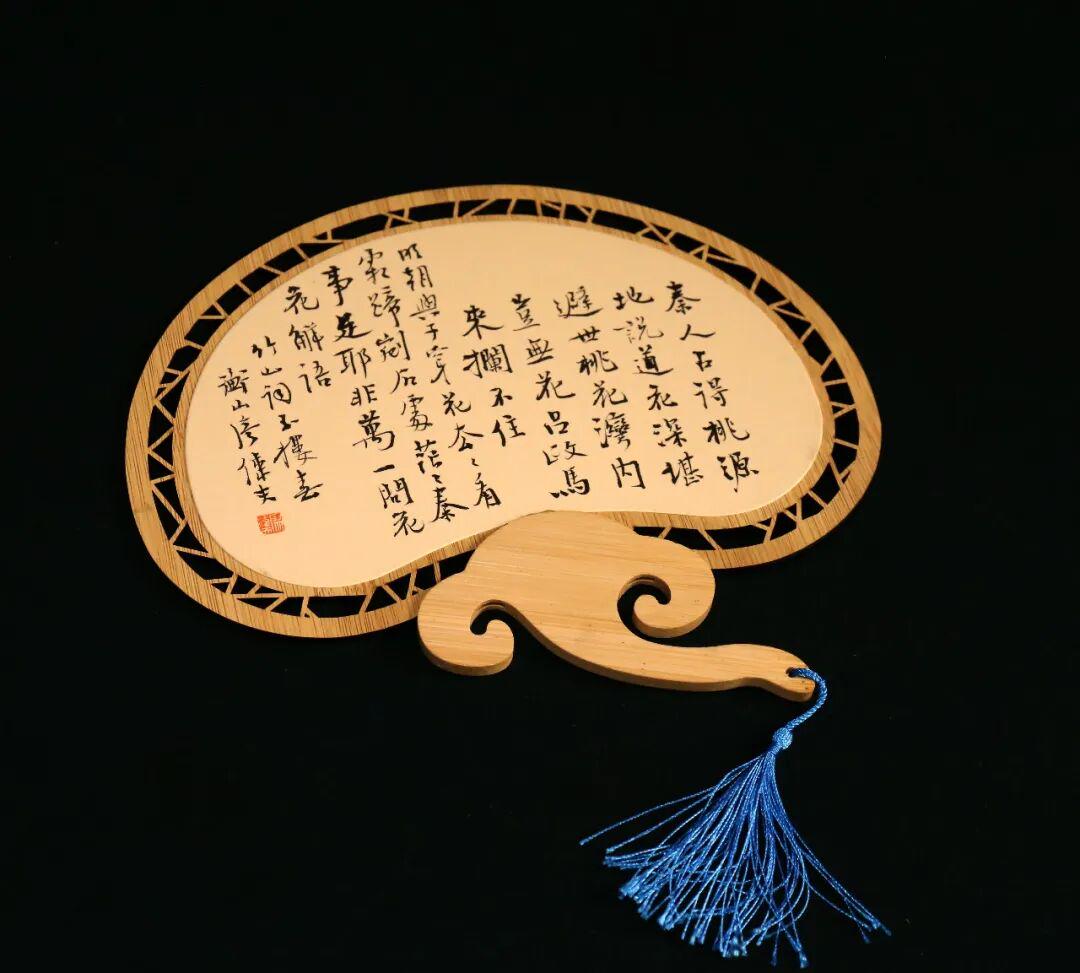 秦人占得桃源
地說道花深堪
避世桃花灣內
豈無花呂政馬
來攔不住
明朝與子穿花去々看
霜蹄剜石處茫々秦
事是耶非萬一問花
花解語
竹山詞玉樓春
山偉夫